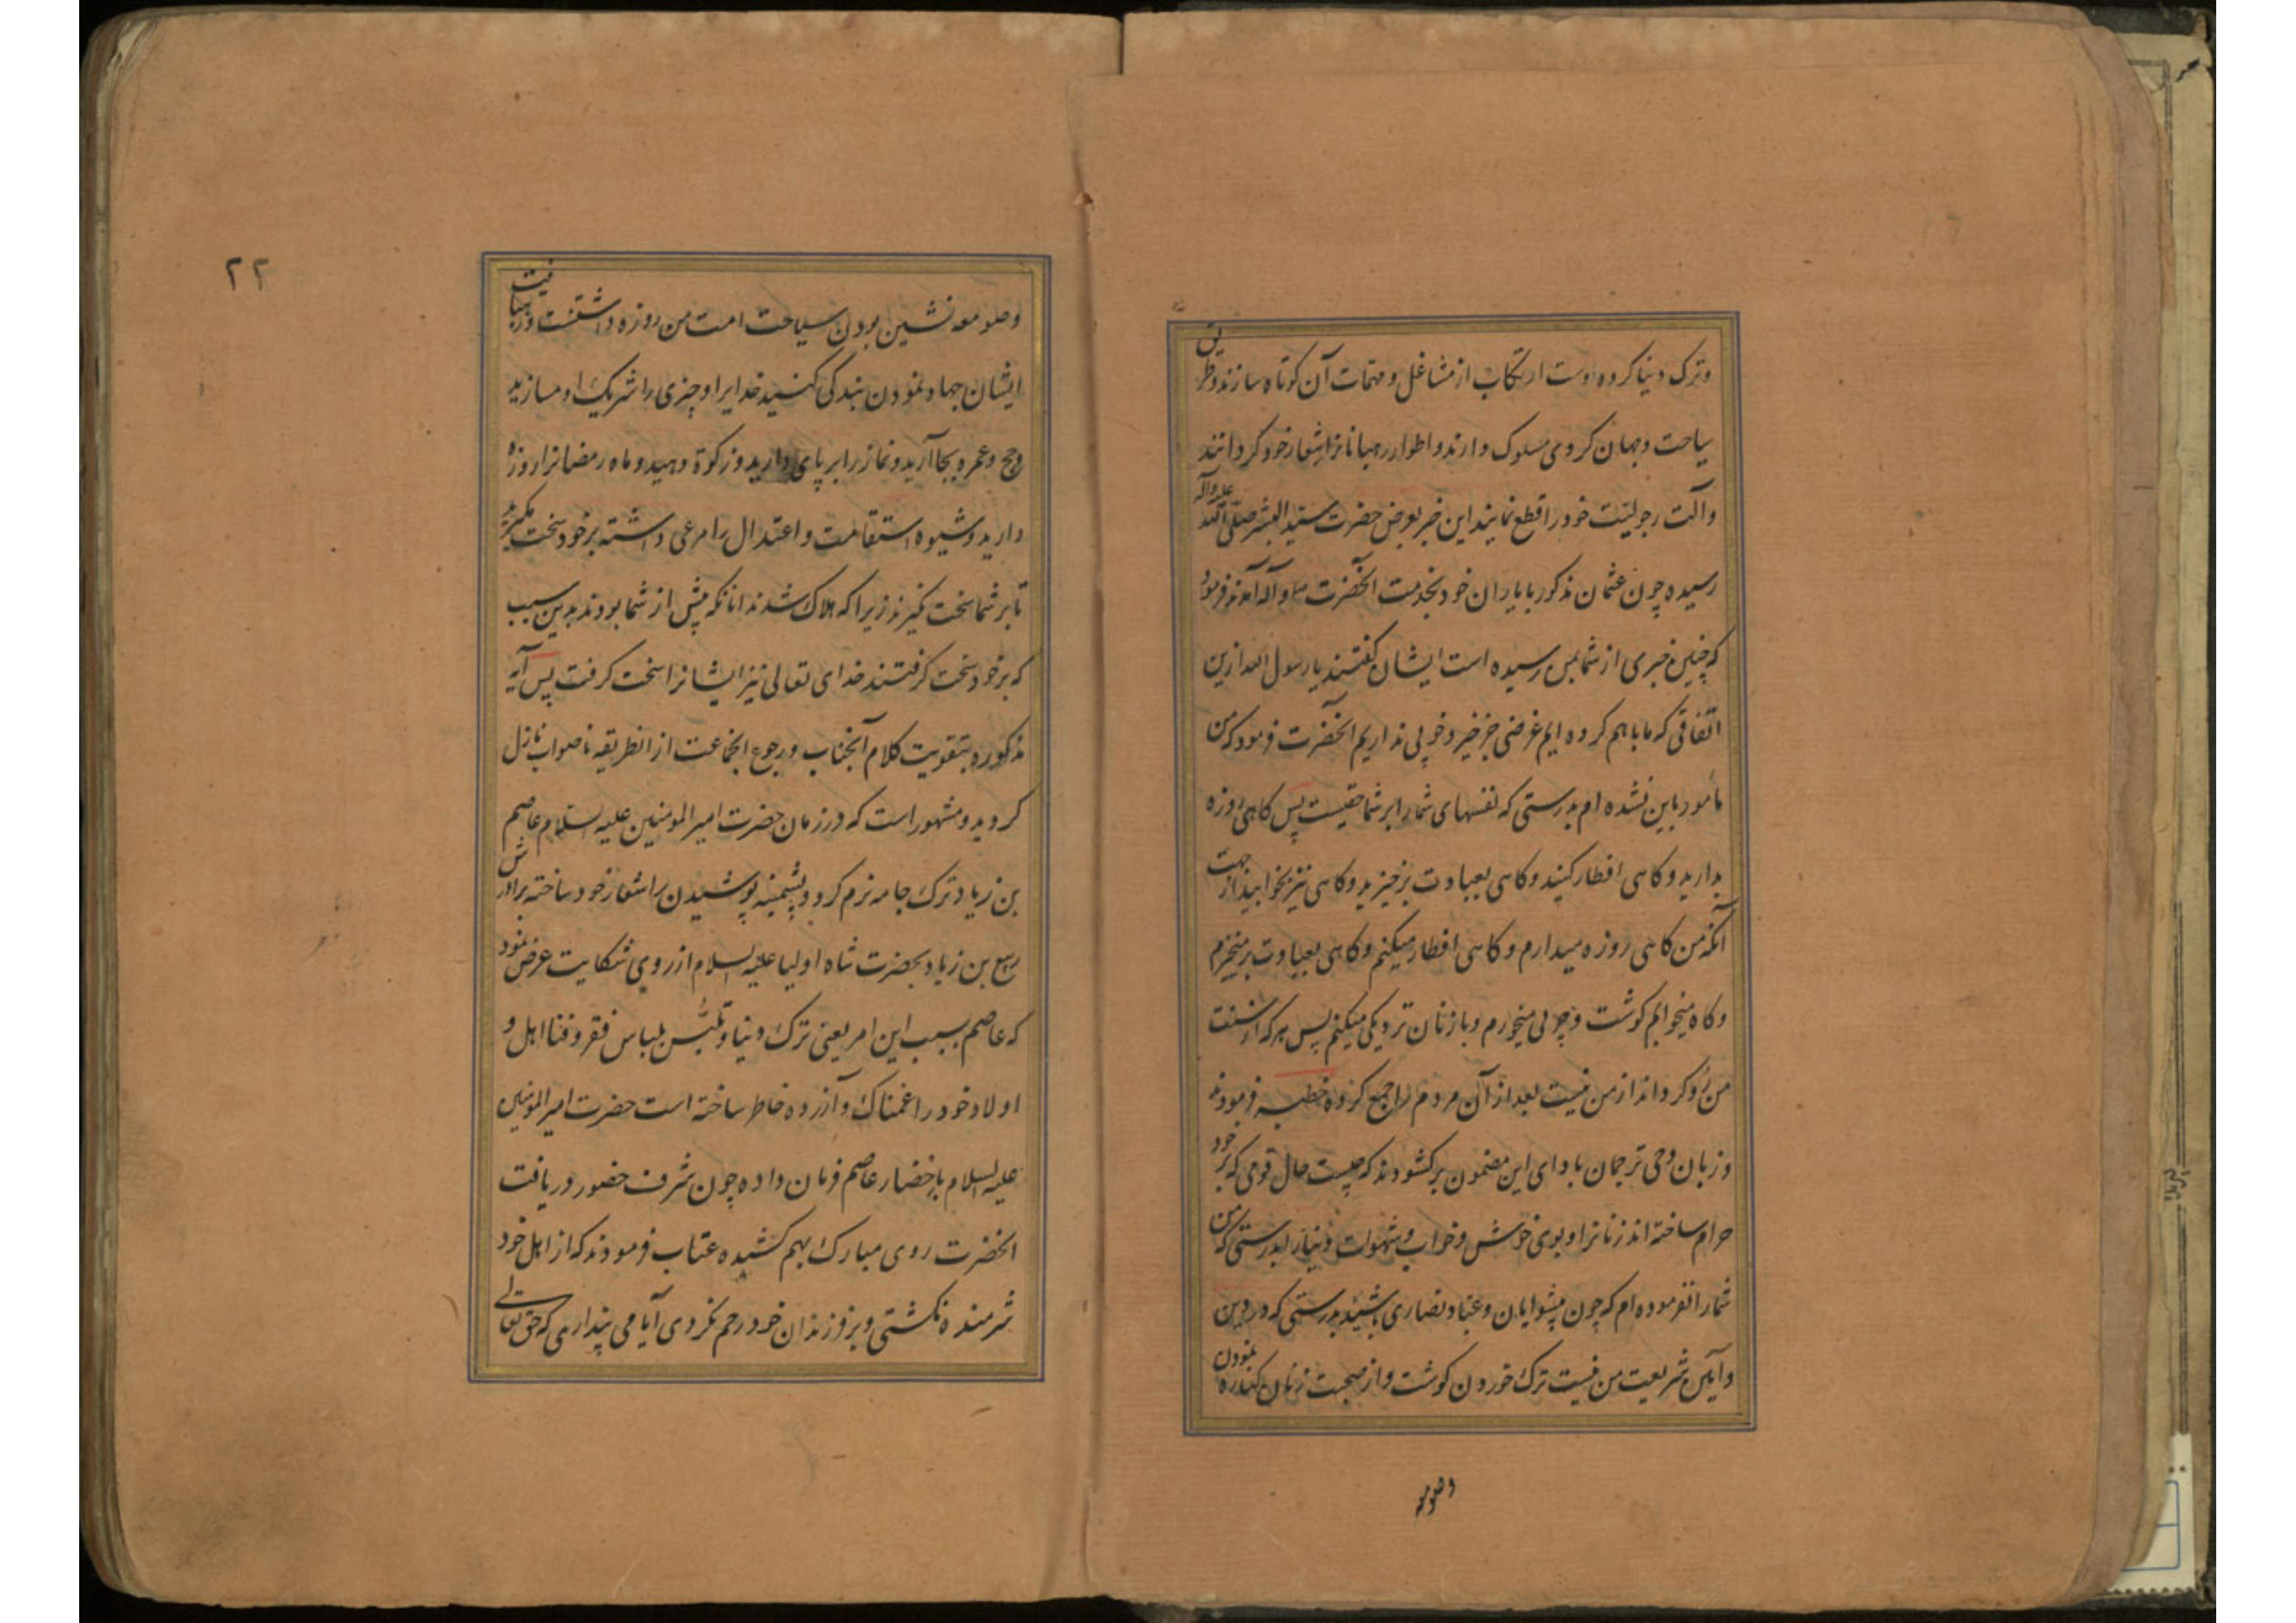 وترک دنیا کرده دست ارتکاب از مشاغل و مهمات آن کوتاه سازند وطریق
سیاحت وجهان کردی مسلوک دارند واطوار رهبانانرا شعار خود کردانند
وآلت رجولیت خود را قطع نمایند این خبر بعرض حضرت سید البشر صلی الله علیه وآله
رسیده چون عثمان مذکور با یاران خود بخدمت آنحضرت ص وآله آمدند فرمود
که چنین خبری از شما بمن رسیده است ایشان کفتند یا رسول الله ازین
اتفاقی که ما با هم کرده ایم غرضی جز خیر وخوبی نداریم آنحضرت فرمود که من
مأمور باین نشده ام بدرستی که نفسهای شما را بر شما حقیست پس کاهی روزه
بدارید وکاهی افطار کنید وکاهی بعبادت برخیزید وکاهی نیز بخوابید از جهت
آنکه من کاهی روزه میدارم وکاهی افطار میکنم وکاهی بعبادت برمیخیزم
وکاه میخوابم کوشت وچربی میخورم وبا زنان نزدیکی میکنم پس هر که از سنت
من رو کرداند از من نیست بعد از آن مردم را جمع کرده خطبه فرمودند
وزبان وحی ترجمان بادای این مضمون برکشودند که چیست حال قومی که بر خود
حرام ساخته اند زنانرا وبوی خوش وخواب وشهوات دنیا را بدرستی که من
شما را نفرموده ام که چون پیشوایان وعباد نصاری باشید بدرستی که در دین
وآیین شریعت من نیست ترک خوردن کوشت واز صحبت زنان کناره نمودن
وصومعه
۲۲
وصومعه نشین بودن سیاحت امت من روزه داشتنست ورهبانیت
ایشان جهاد نمودن بندکی کنید خدایرا وچیزی را شریک او مسازید
وحج وعمره بجا آرید ونماز را برپای دارید وزکوة دهید وماه رمضانرا روزه
دارید وشیوه استقامت واعتدال را مرعی داشته بر خود سخت مگیرید
تا بر شما سخت نکیرند زیرا که هلاک شدند آنانکه پیش از شما بودند بدین سبب
که بر خود سخت کرفتند خدای تعالی نیز ایشانرا سخت کرفت پس آیه
مذکوره بتقویت کلام آنجناب ورجوع انجماعت از انطریقه ناصواب نازل
کردید ومشهور است که در زمان حضرت امیر المومنین علیه السلام عاصم
بن زیاد ترک جامه نرم کرد وپشمینه پوشیدن را شعار خود ساخته برادرش
ربیع بن زیاد بحضرت شاه اولیا علیه السلام از روی شکایت عرض نمود
که عاصم بسبب این امر یعنی ترک دنیا وتلبس بلباس فقر وفنا اهل و
اولاد خود را غمناک وآزرده خاطر ساخته است حضرت امیر المومنین
علیه السلام باحضار عاصم فرمان داده چون شرف حضور دریافت
انحضرت روی مبارک بهم کشیده عتاب فرمودند که از اهل خود
شرمنده نکشتی وبر فرزندان خود رحم نکردی آیا می پنداری که حق تعالی